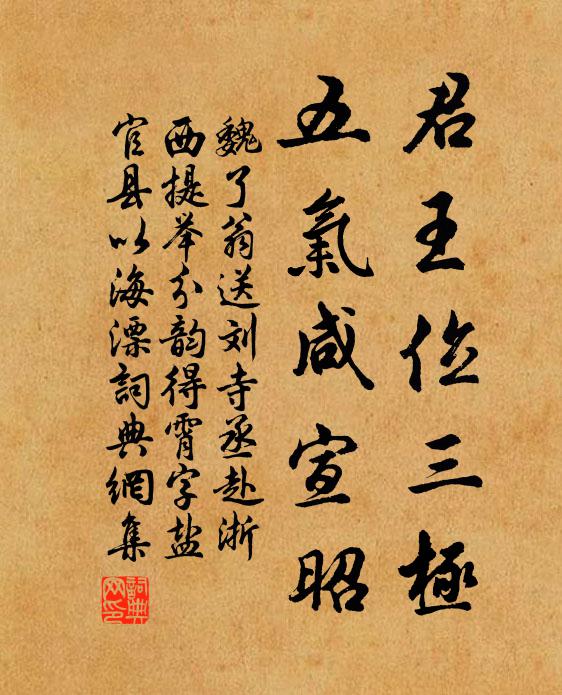 君王位三極
五氣咸宣昭
魏了翁送刘寺丞赴浙
西提举分韵得霄字盐
官县以海漂詞典網集
詞典
网印